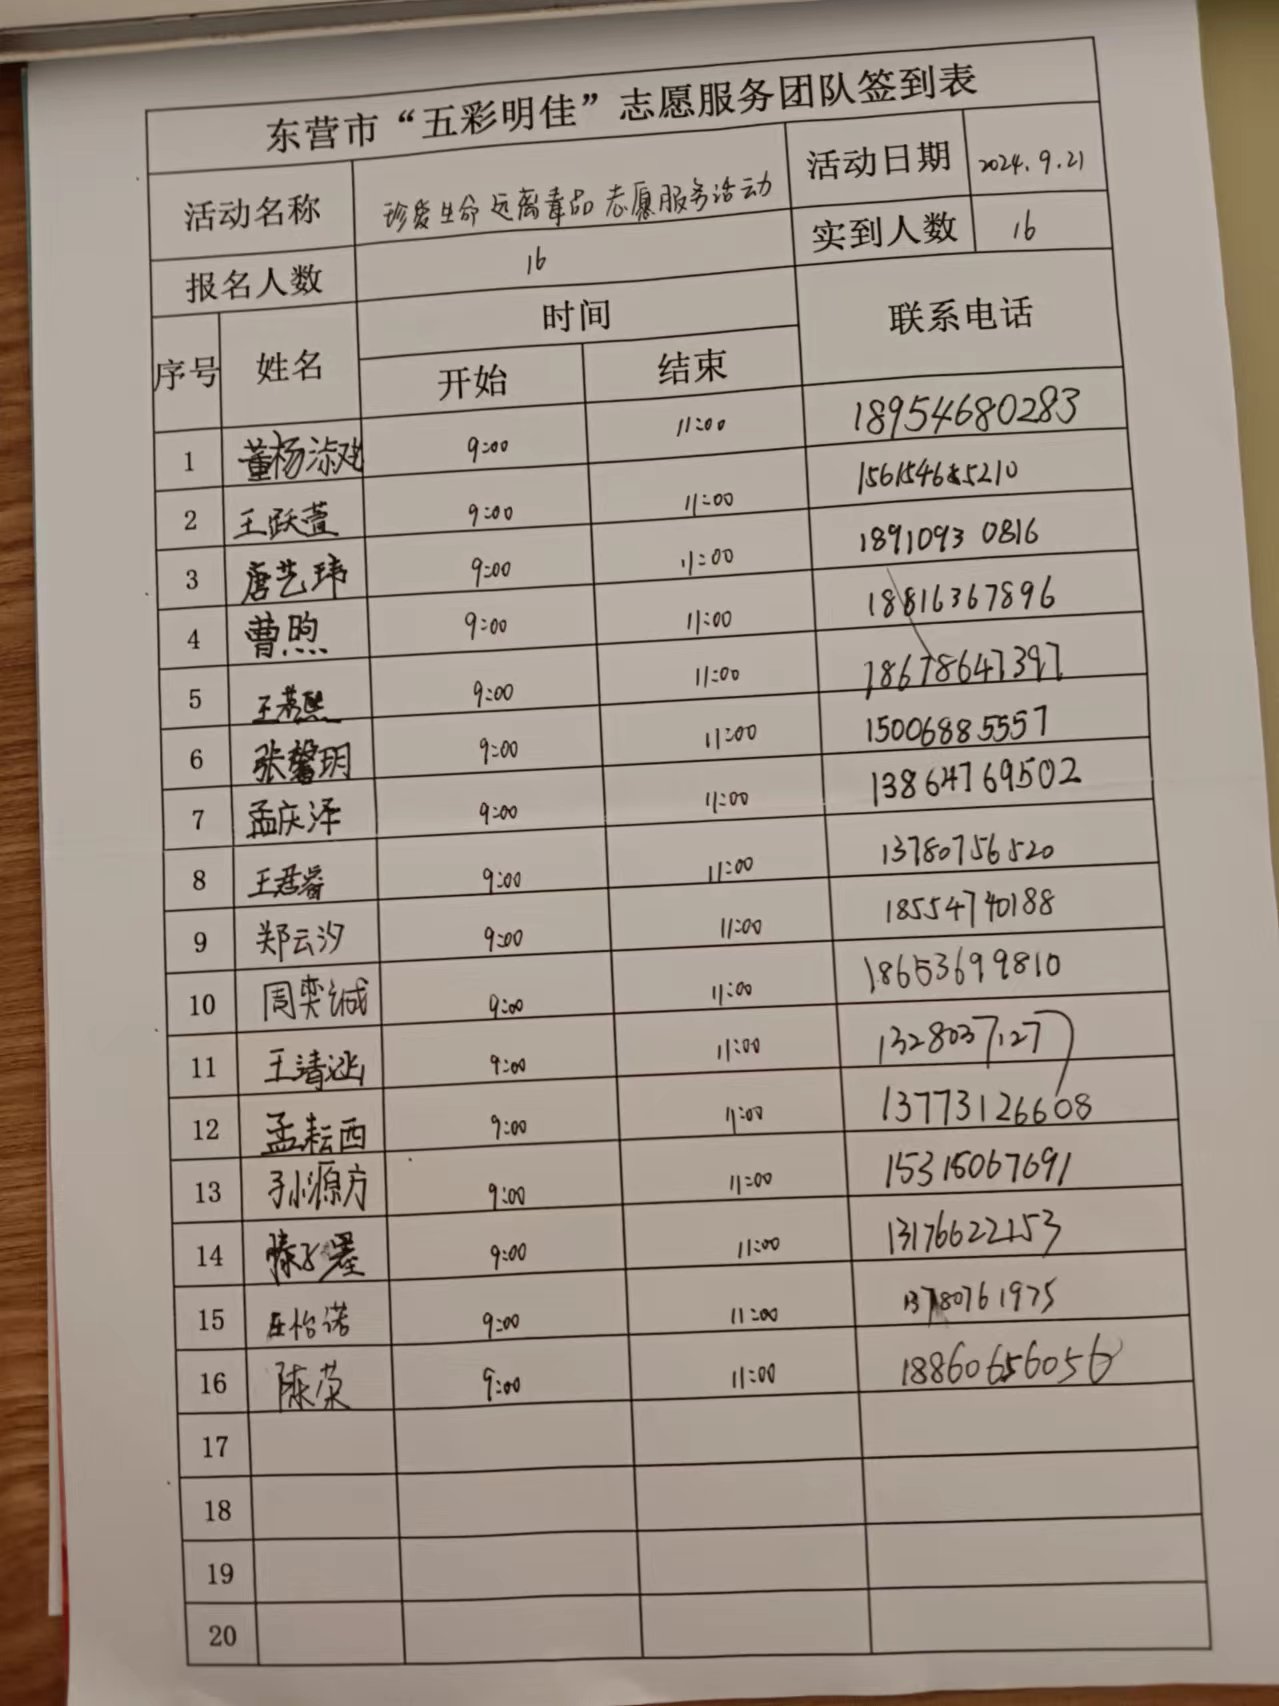 东营市“五彩明佳”志愿服务团队签到表
活动名称 珍爱生命 远离毒品 志愿服务活动 活动日期 2024.9.21
报名人数 16 实到人数 16
序号 姓名 时间 联系电话
开始 结束
1 董杨淑 9:00 11:00 18954680283
2 王跃萱 9:00 11:00 15615465210
3 唐艺玮 9:00 11:00 18910930816
4 曹煦 9:00 11:00 18816367896
5 王若熙 9:00 11:00 18678647397
6 张馨玥 9:00 11:00 15006885557
7 孟庆泽 9:00 11:00 13864769502
8 王君睿 9:00 11:00 13780756520
9 郑云汐 9:00 11:00 18554740188
10 周奕诚 9:00 11:00 18653699810
11 王清 9:00 11:00 13280371277
12 孟耘西 9:00 11:00 13773126608
13 孙源方 9:00 11:00 15315067691
14 子墨 9:00 11:00 13176622153
15 庄怡诺 9:00 11:00 13780761975
16 陈荣 9:00 11:00 18860656056
17
18
19
20